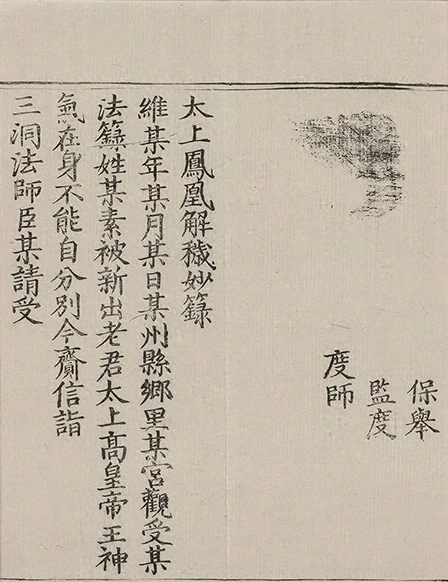 保舉
監度
度師
太上鳳凰解穢妙籙
維某年某月某日某州縣鄉里某宮觀受某
法籙姓某素被新出老君太上高皇帝王神
氣在身不能自分別今齎信詣
三洞法師臣某請受